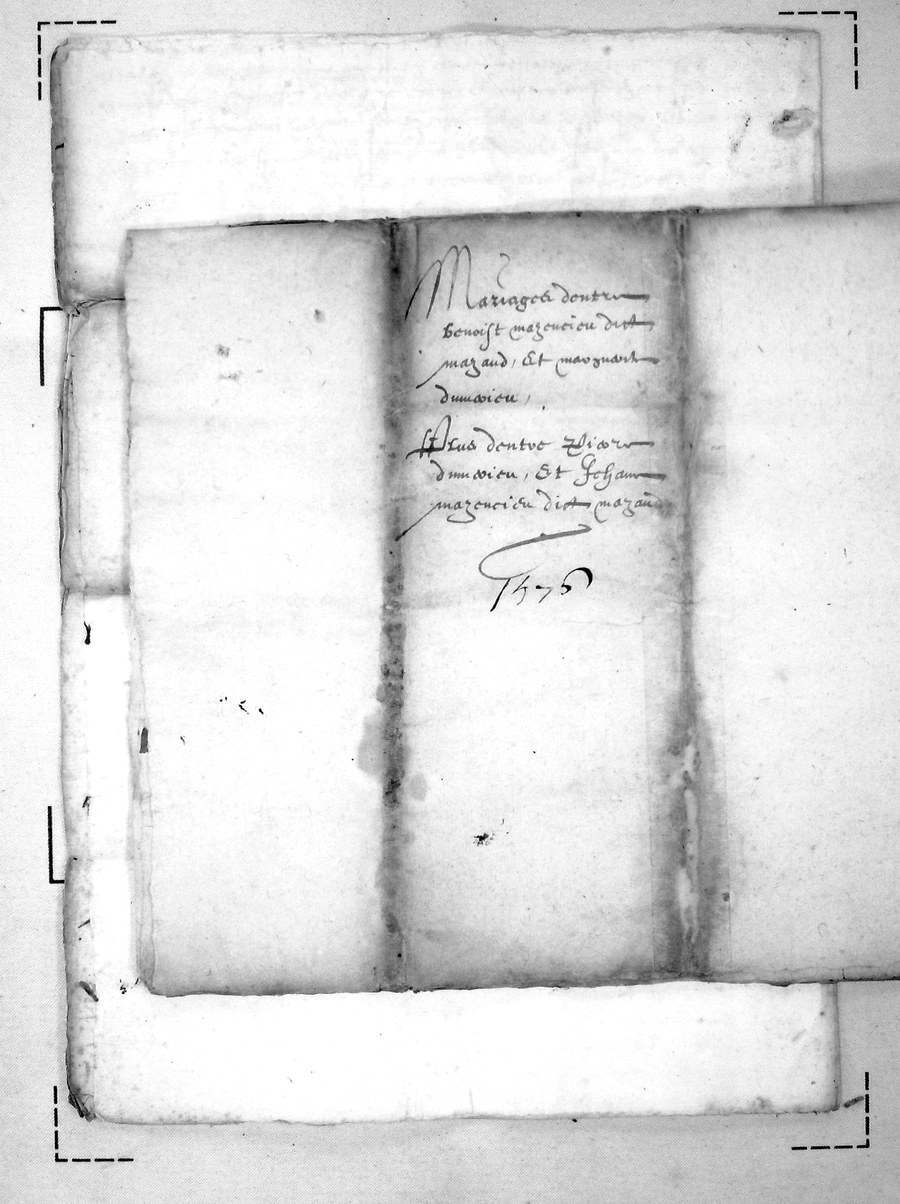 Mariages dentre
benoist mazencieu dict
mazaud, Et marguarite
dumoieu,
Plus dentre Pierre
dumoieu, Et Jehanne
mazencieu dict mazaud
1576